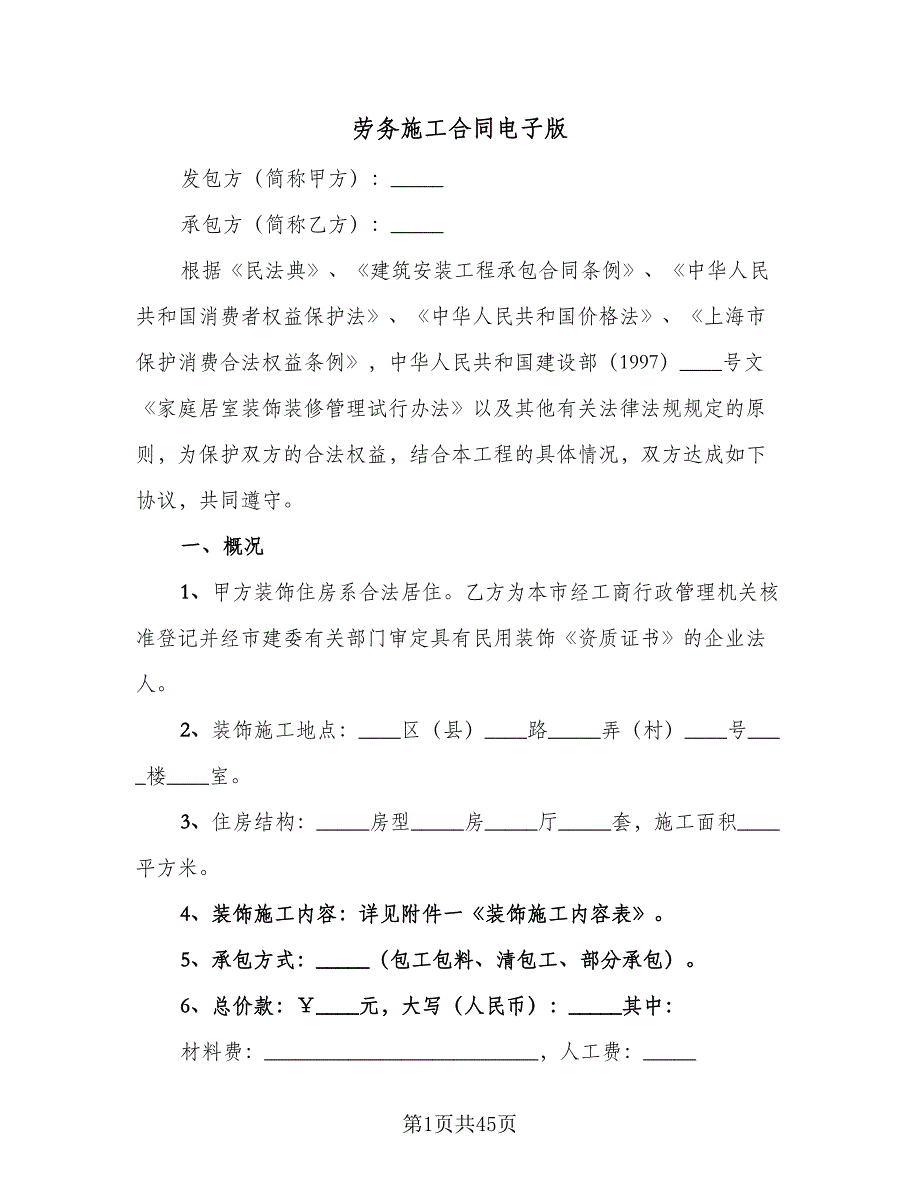 劳务施工合同电子版
发包方（简称甲方）：_____
承包方（简称乙方）：_____
根据《民法典》、《建筑安装工程承包合同条例》、《中华人民
共和国消费者权益保护法》、《中华人民共和国价格法》、《上海市
保护消费合法权益条例》，中华人民共和国建设部（1997）____号文
《家庭居室装饰装修管理试行办法》以及其他有关法律法规规定的原
则，为保护双方的合法权益，结合本工程的具体情况，双方达成如下
协议，共同遵守。
一、概况
1、甲方装饰住房系合法居住。乙方为本市经工商行政管理机关核
准登记并经市建委有关部门审定具有民用装饰《资质证书》的企业法
人。
2、装饰施工地点：____区（县）____路_____弄（村）____号___
_楼____室。
3、住房结构：_____房型_____房_____厅_____套，施工面积____
平方米。
4、装饰施工内容：详见附件一《装饰施工内容表》。
5、承包方式：_____（包工包料、清包工、部分承包）。
6、总价款：￥____元，大写（人民币）：_____其中：
材料费：__________________________，人工费：_____
第1页共45页